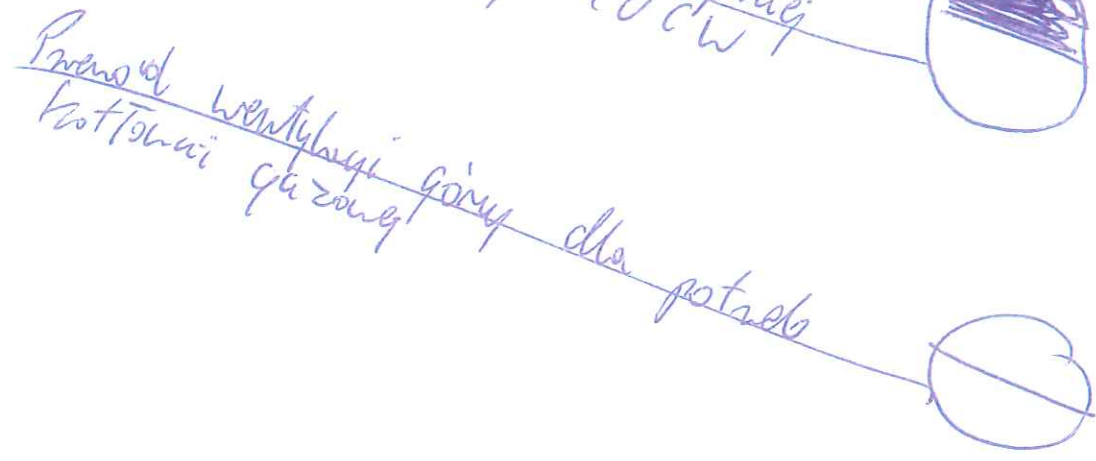 CW
Przewód wentylacji górny dla potrzeb
kotłowni gazowej